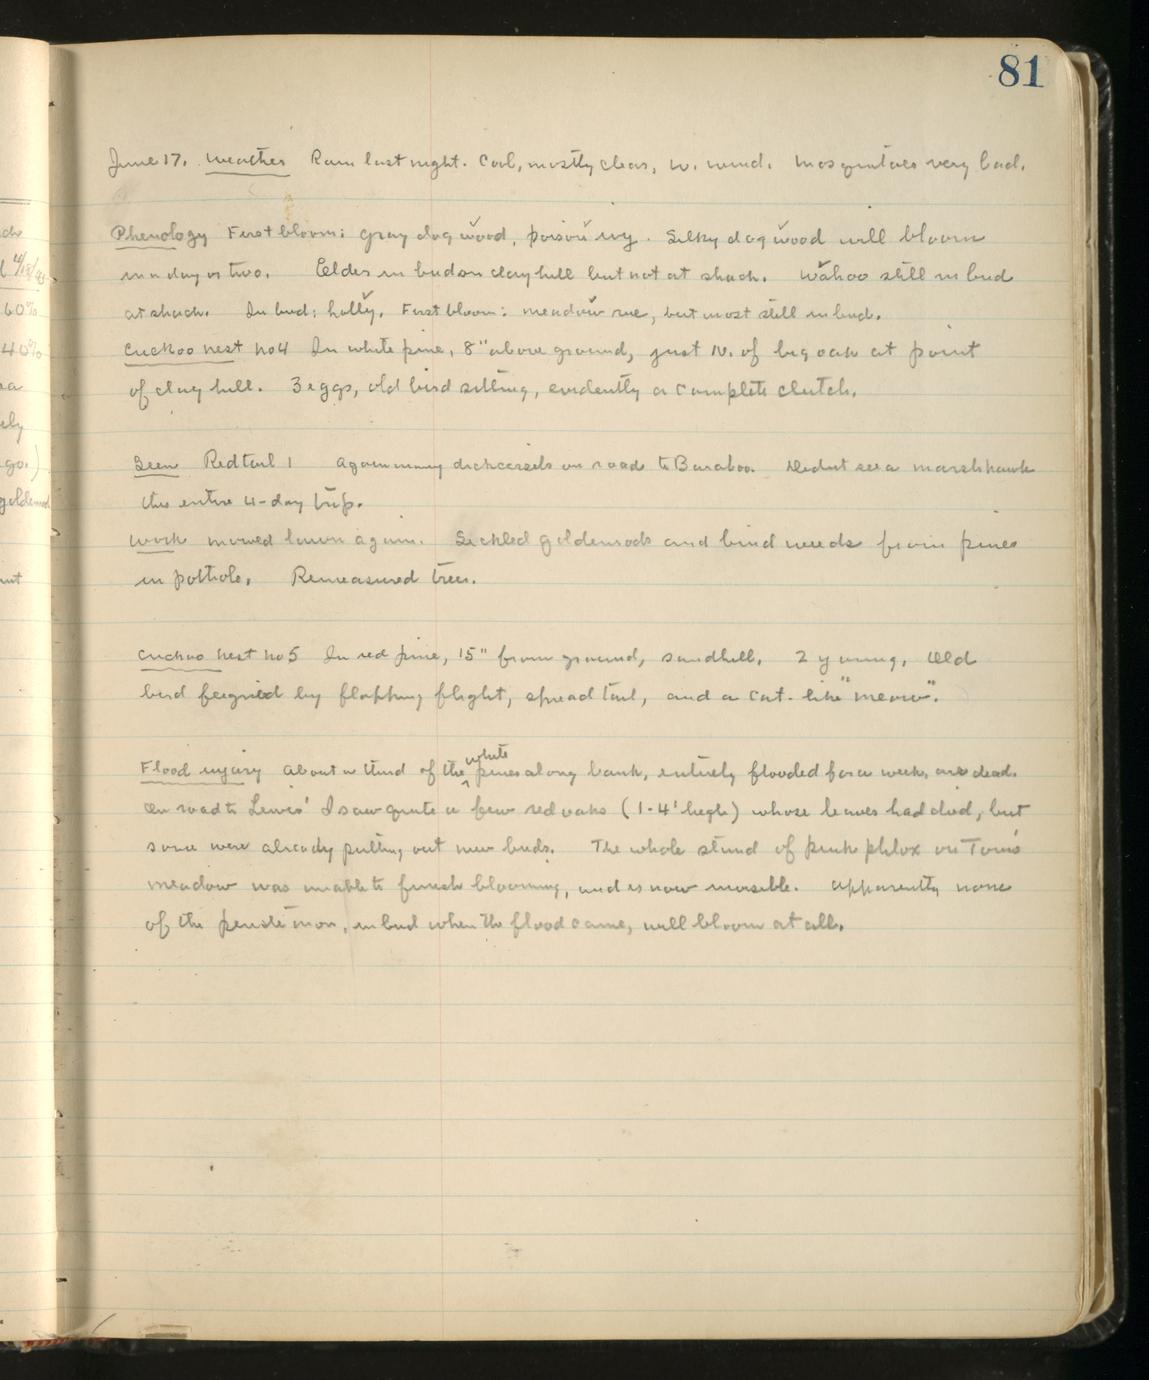 81
June 17. Weather Rain last night. Cool, mostly clear, W. wind. Mosquitoes very bad.
Phenology First bloom: gray dogwood, poison ivy. Silky dogwood will bloom
in a day or two. Elder in bud on clay hill but not at shack. Wahoo still in bud
at shack. In bud: holly. First bloom: meadow rue, but most still in bud.
Cuckoo nest no4 In white pine, 8" above ground, just N. of big oak at point
of clay hill. 3 eggs, old bird sitting, evidently a complete clutch.
Seen Redtail 1 Again many dickcissels on road to Baraboo. Didnt see a marsh hawk
the entire 4-day trip.
Work mowed lawn again. Sickled goldenrods and bind weeds from pines
in pothole. Remeasured trees.
Cuckoo nest no5 In red pine, 15" from ground, sandhill. 2 young. Old
bird feigned by flapping flight, spread tail, and a cat-like "meow".
Flood injury About a third of the white pines along bank, entirely flooded for a week, are dead.
On road to Lewis' I saw quite a few red oaks (1-4' high) whose leaves had died, but
some were already putting out new buds. The whole stand of pink phlox on Tom's
meadow was unable to finish blooming, and is now invisible. Apparently none
of the penstemon, in bud when the flood came, will bloom at all.
60%
40%
ely
go.)
goldenrod